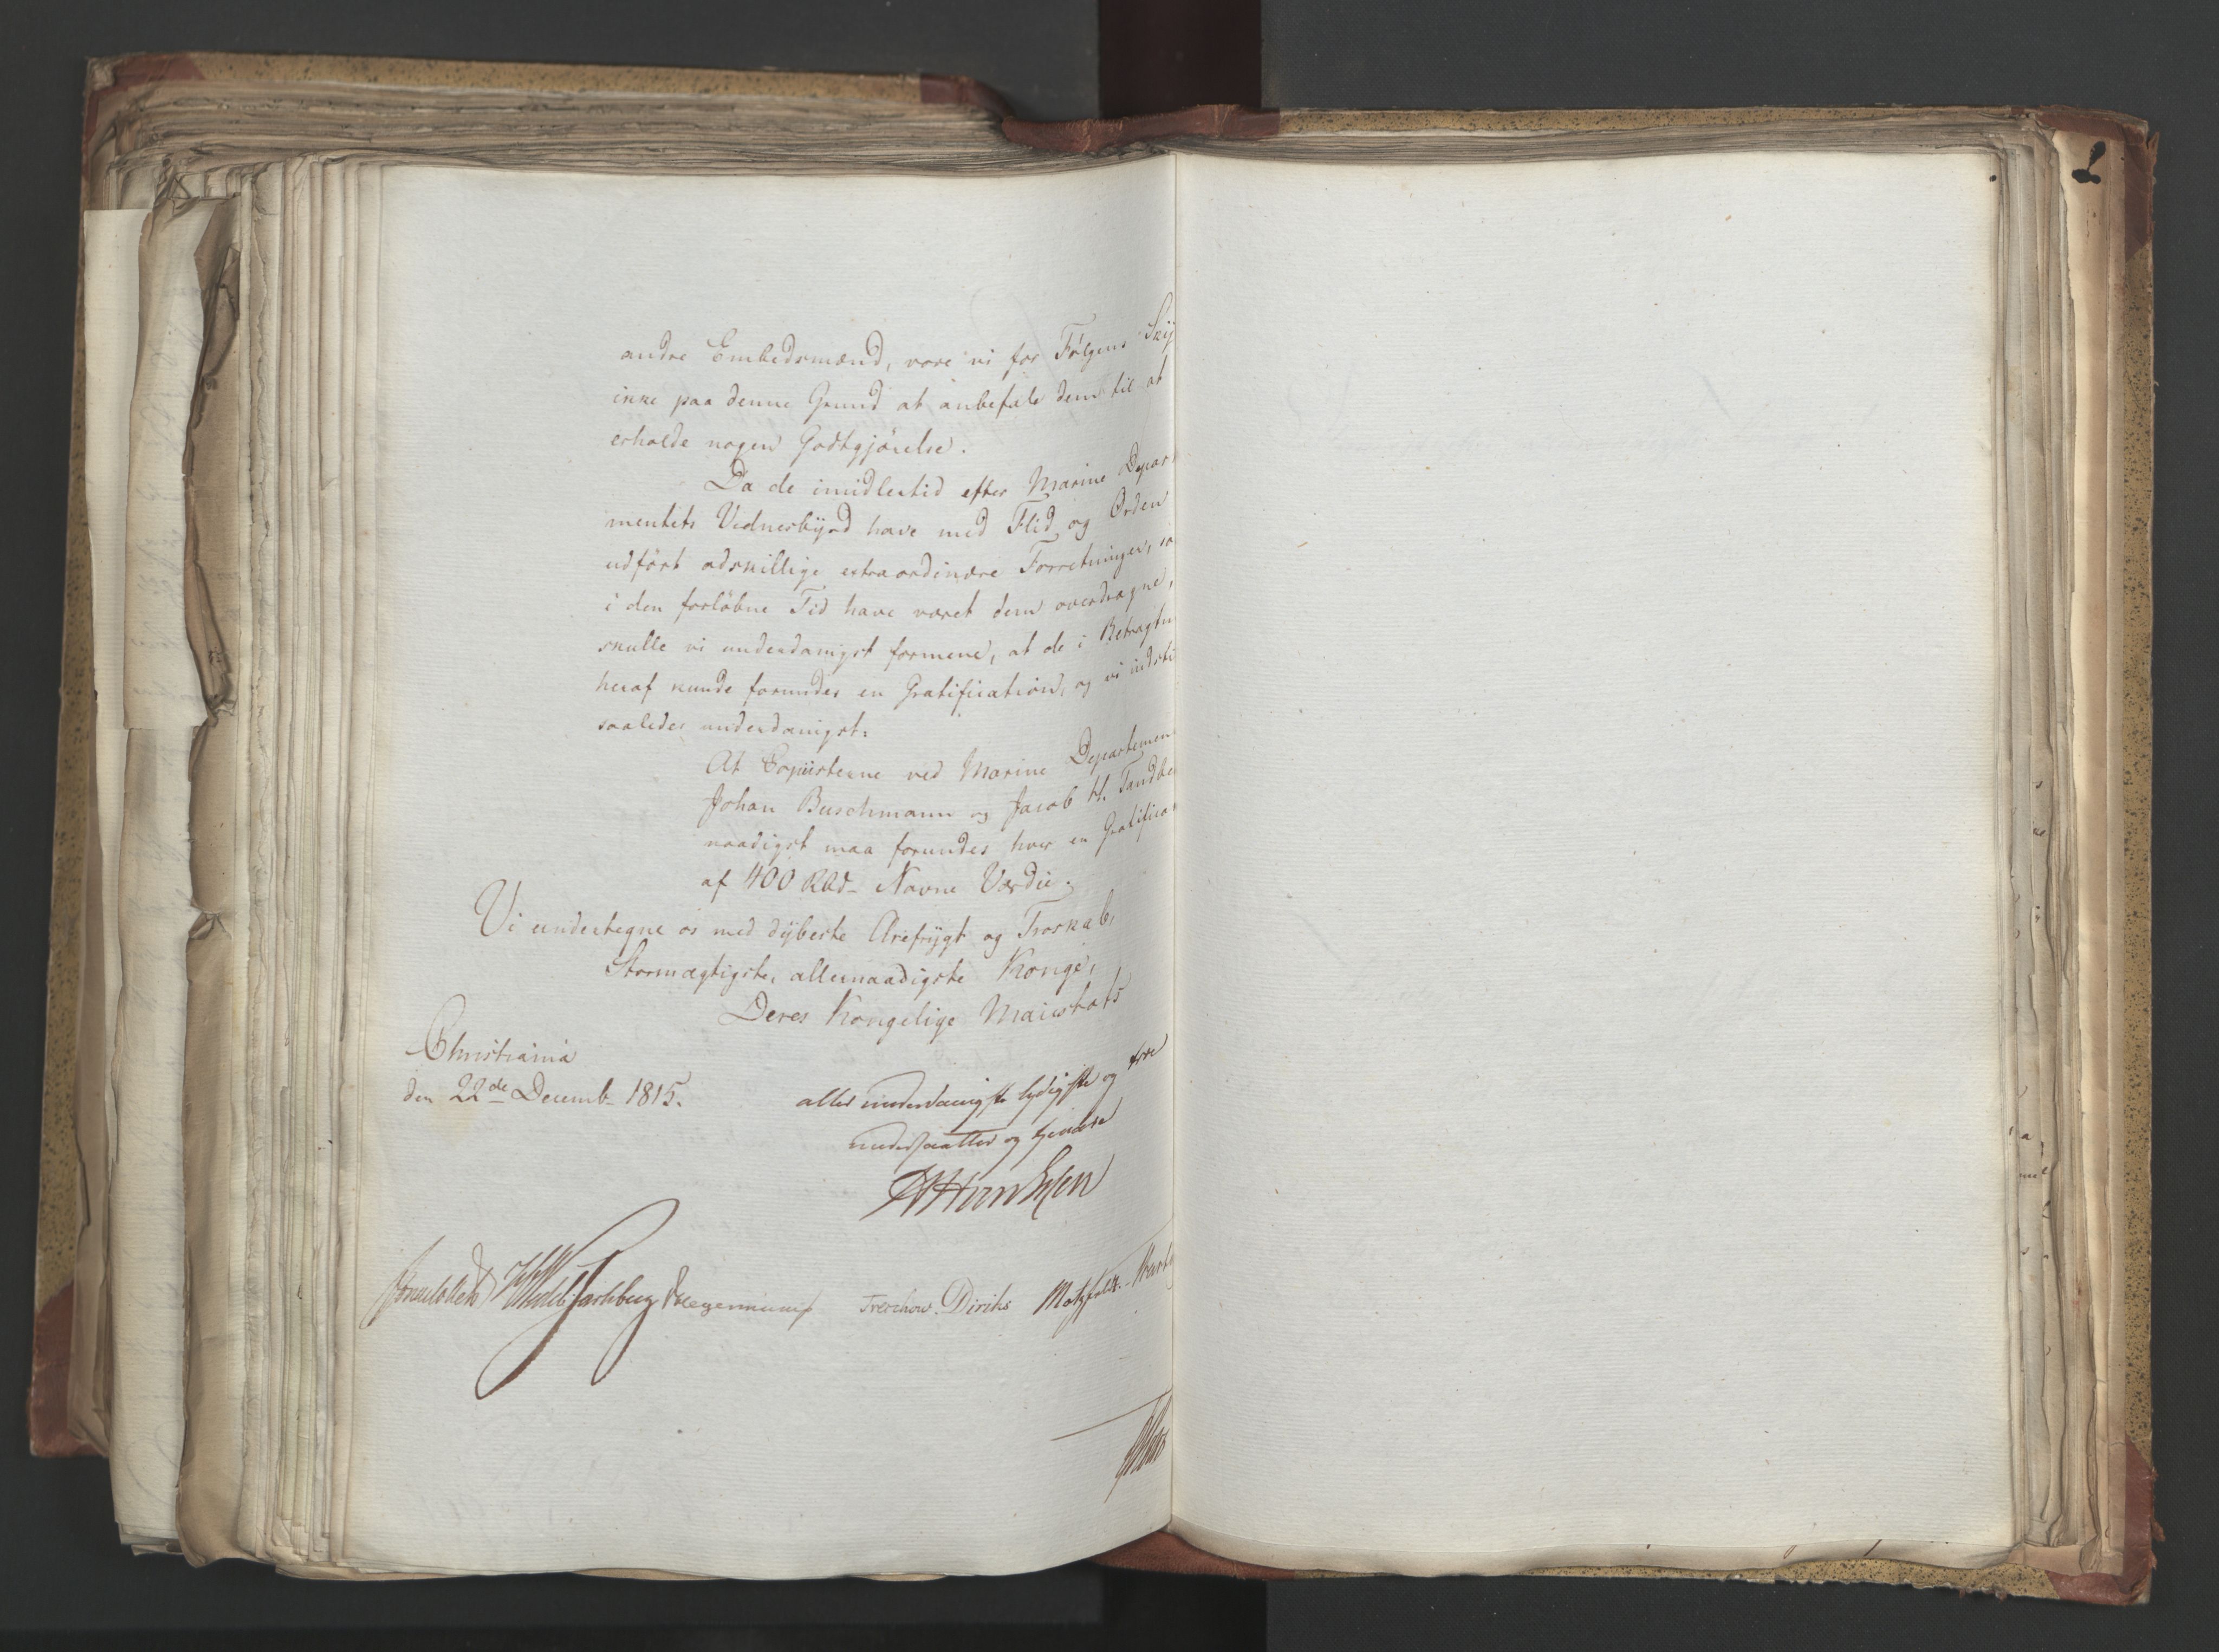 andre Embedsmænd, vove vi for Følgens Sky
ikke paa denne Grund at anbefale dem til at
erholde nogen Godtgjörelse.
Da de imidlertid efter Marine Depar
mentets Vidnesbÿrd have med Flid og Orden
udfört adskillige extraordinære Forretninger, so
i den forlöbne Tid have været dem overdragne,
skulle vi underdanigst formene, at de i Betragtn
heraf kunde forundes en Gratification, og vi indsti
saaledes underdanigst:
At Copiisterne ved Marine Departemen
Johan Buschmann og Jacob H. Tandbe
naadigst maa forundes hver en Gratifica
af 400 Rbd. Navne Værdie.
Vi undertegne os med dÿbeste Ærefrÿgt og Troskab,
Stormægtigste, allernaadigste Konge,
Deres Kongelige Maiestæts
Christiania
den 22de Decemb. 1815.
aller underdanigste lydigste og troe
undersaatter og tjenere
Sommerhielm Wedel Jarlsberg Hegermann Treschow. Diriks Motzfeldt.